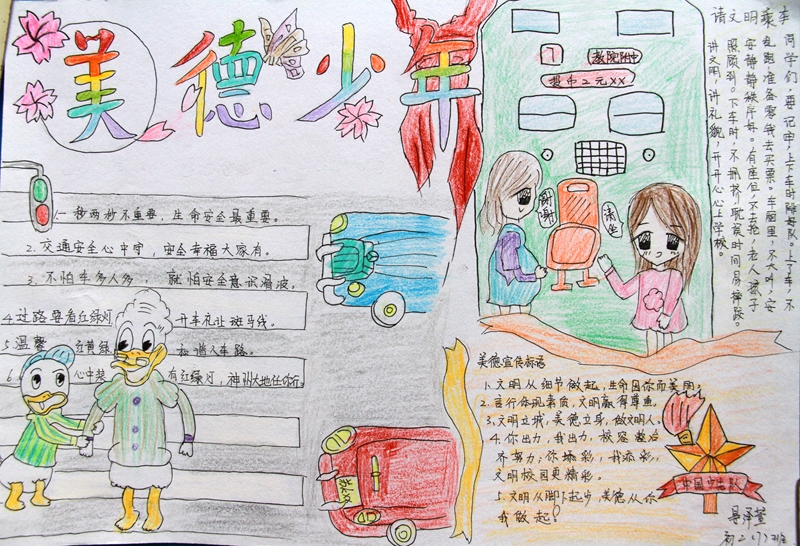 美德少年
1. 一秒两秒不重要，生命安全最重要。
2. 交通安全心中守，安全幸福大家有。
3. 不怕车多人多 就怕安全意识滑坡。
4. 过路要看红绿灯 开车礼让斑马线。
5. 温馨 红黄绿 和谐人车路。
6. 心中装 有红绿灯，神州大地任你行。
7
教院附中
投币2元XX
谢谢
请坐
请文明乘车
同学们，要记牢，上下车时排好队。上了车，不
乱跑准备零钱去买票。车厢里，不大叫，安
安静静秩序好。有座位，不去抢，老人孩子
照顾到。下车时，不拥挤，
讲文明，讲礼貌，开开心心上学校。
美德宣传标语
1. 文明从细节做起，生命因你而美丽。
2. 言行体现素质，文明赢得尊重。
3. 文明立城，美德立身，做文明人。
4. 你出力，我出力，校容整洁
齐努力；你添彩，我添彩，
文明校园更精彩。
5. 文明从脚下起步，美德从你
我做起！
中国少先队
初二(7)班